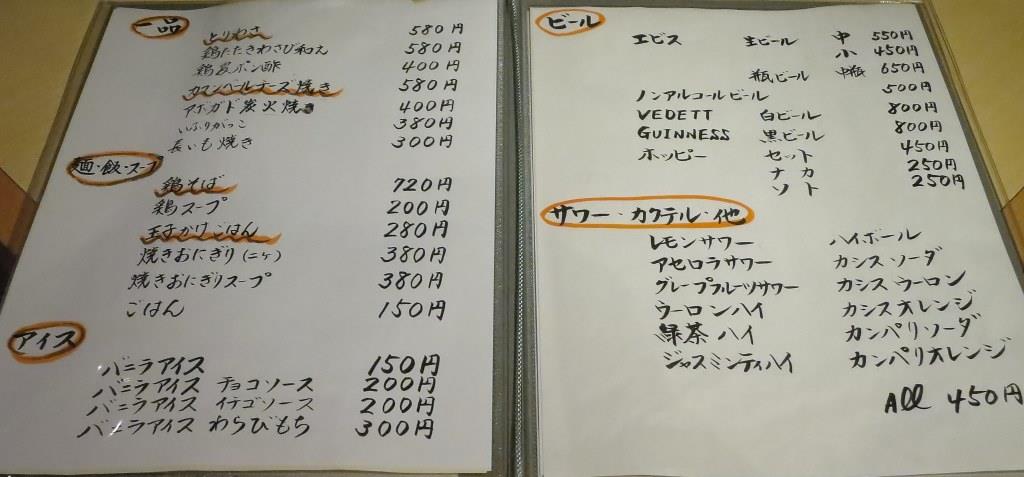 一品
とりわさ 580円
鶏たたきわさび和え 580円
鶏皮ポン酢 400円
カマンベールチーズ焼き 580円
アボガド炭火焼き 400円
いぶりがっこ 380円
長いも焼き 300円
麺・飯・スープ
鶏そば 720円
鶏スープ 200円
玉子かけごはん 280円
焼きおにぎり(二ヶ) 380円
焼きおにぎりスープ 380円
ごはん 150円
アイス
バニラアイス 150円
バニラアイス チョコソース 200円
バニラアイス イチゴソース 200円
バニラアイス わらびもち 300円
ビール
エビス 生ビール 中 550円
小 450円
瓶ビール 中瓶 650円
ノンアルコールビール 500円
VEDETT 白ビール 800円
GUINNESS 黒ビール 800円
ホッピー セット 450円
ナカ 250円
ソト 250円
サワー・カクテル・他
レモンサワー ハイボール
アセロラサワー カシスソーダ
グレープフルーツサワー カシスウーロン
ウーロンハイ カシスオレンジ
緑茶ハイ カンパリソーダ
ジャスミンティハイ カンパリオレンジ
All 450円